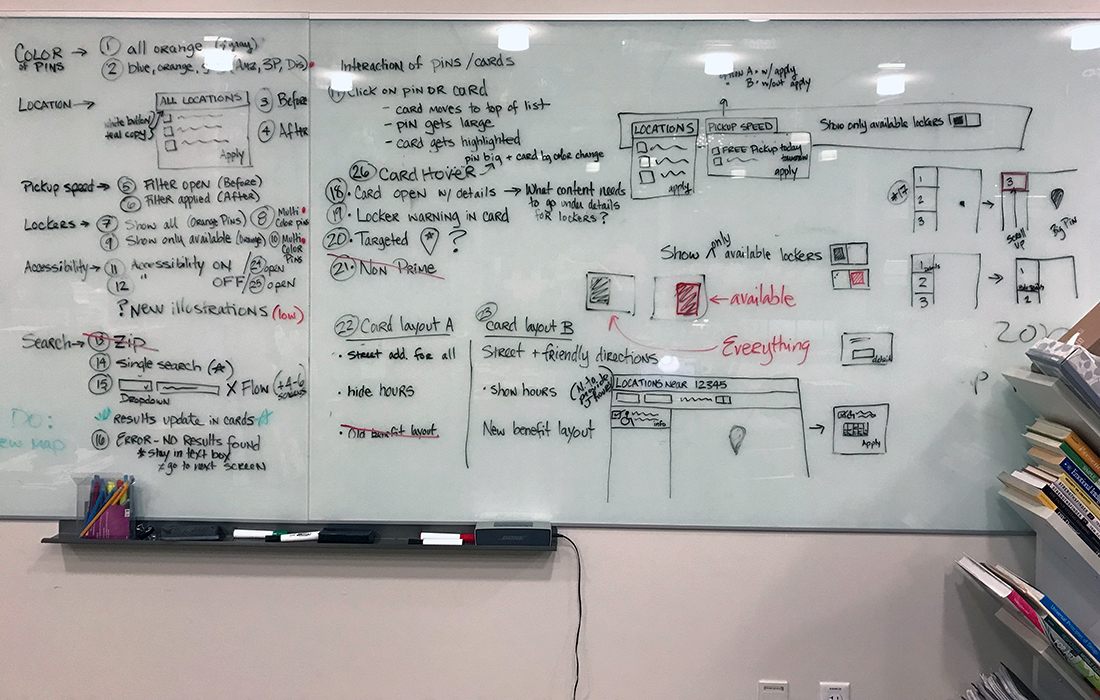 COLOR OF PINS → 1 all orange (+ gray)
2 blue, orange, (Amz, 3P, Dis)
LOCATION → ALL LOCATIONS
white button
teal copy
Apply
3 Before
4 After
Pickup speed → 5 Filter open (Before)
6 Filter applied (After)
Lockers → 7 Show all (Orange Pins) 8 Multi Color pins
9 Show only available (Orange) 10 Multi Color Pins
Accessibility → 11 Accessibility ON / 24 open
12 " OFF / 25 open
? New illustrations (low)
Search → 13 Zip
14 Single search
15 Dropdown X Flow (+4-6 screens)
DO:
NEW MAP
Results update in cards
16 Error - No results found
* stay in text box
* go to next screen
Interaction of pins / cards
Click on pin OR card
- card moves to top of list
- pin gets large
- card gets highlighted
pin big + card bg color change
26 Card Hover
18 • Card open w/ details → What content needs to go under details for lockers?
19 • Locker warning in card
20 • Targeted ?
21 • Non Prime
22 Card layout A
• Street add. for all
hide hours
• Old benefit layout
23 Card layout B
Street + friendly directions
• Show hours
New benefit layout
A • w/ apply
B • w/out apply
LOCATIONS
apply
PICKUP SPEED
FREE Pickup today
tomorrow
apply
Show only available lockers
#17
1
2
3
→
3
scroll up
Big Pin
Show only available lockers
← available
Everything
1
2
3
→
1
2
details
LOCATIONS NEAR 12345
info
→
Apply
BOSE